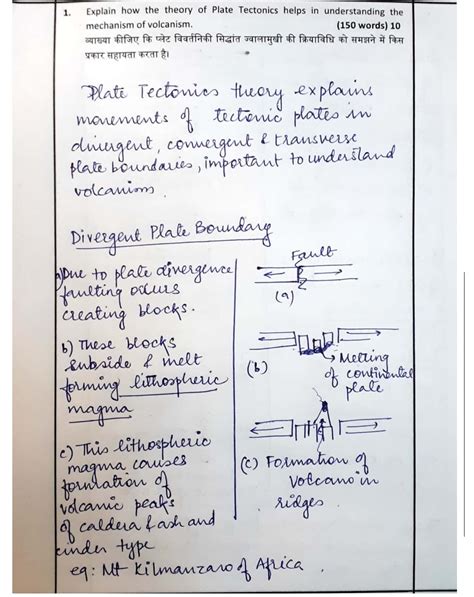 1. Explain how the theory of Plate Tectonics helps in understanding the
mechanism of volcanism. (150 words) 10
व्याख्या कीजिए कि प्लेट विवर्तनिकी सिद्धांत ज्वालामुखी की क्रियाविधि को समझने में किस
प्रकार सहायता करता है।
Plate Tectonics theory explains
movements of tectonic plates in
divergent, convergent & transverse
plate boundaries, important to understand
volcanism.
Divergent Plate Boundary
a) Due to plate divergence
faulting occurs
creating blocks.
Fault
(a)
b) These blocks
subside & melt
forming lithospheric
magma
(b)
Melting
of continental
plate
c) This lithospheric
magma causes
formation of
volcanic peaks
of caldera & ash and
cinder type
eg: Mt Kilmanzaro of Africa.
(c) Formation of
volcano in
ridges.